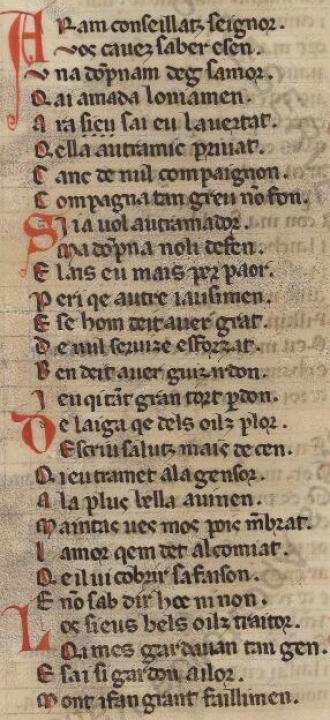 ARam conseillatz seignor.
Vos cauez saber esen.
V na dōpnam deg samor.
Q ai amada loniamen.
A ra sieu sai eu lauertat.
Q ella autramic priuat.
C anc de nul compaignon.
C ompagna tan greu nō fon.
SJ ia uol autramador.
Ma dōpna noli defen.
E lais eu mais per paor.
P eri qe autre iausimen.
E se hom deit auer grat.
D e nul seruize esforzat.
B en deit auer guizardon.
J eu qi tāt gran tort pdon.
De laiga qe dels oilz plor.
Escriu salutz mais de cen.
Q ieu tramet ala gensor.
A la plus bella auinen.
M aintas ues mos pois mēbrat.
L amor qem det al comiat.
Q eil ui cobrir sa faison.
E nō sab dir hoc ni non.
Los sieus bels oilz traitor.
Qi mes gardauan tan gen.
E sai si gardon ailor.
M ont i fan grant faillimen.